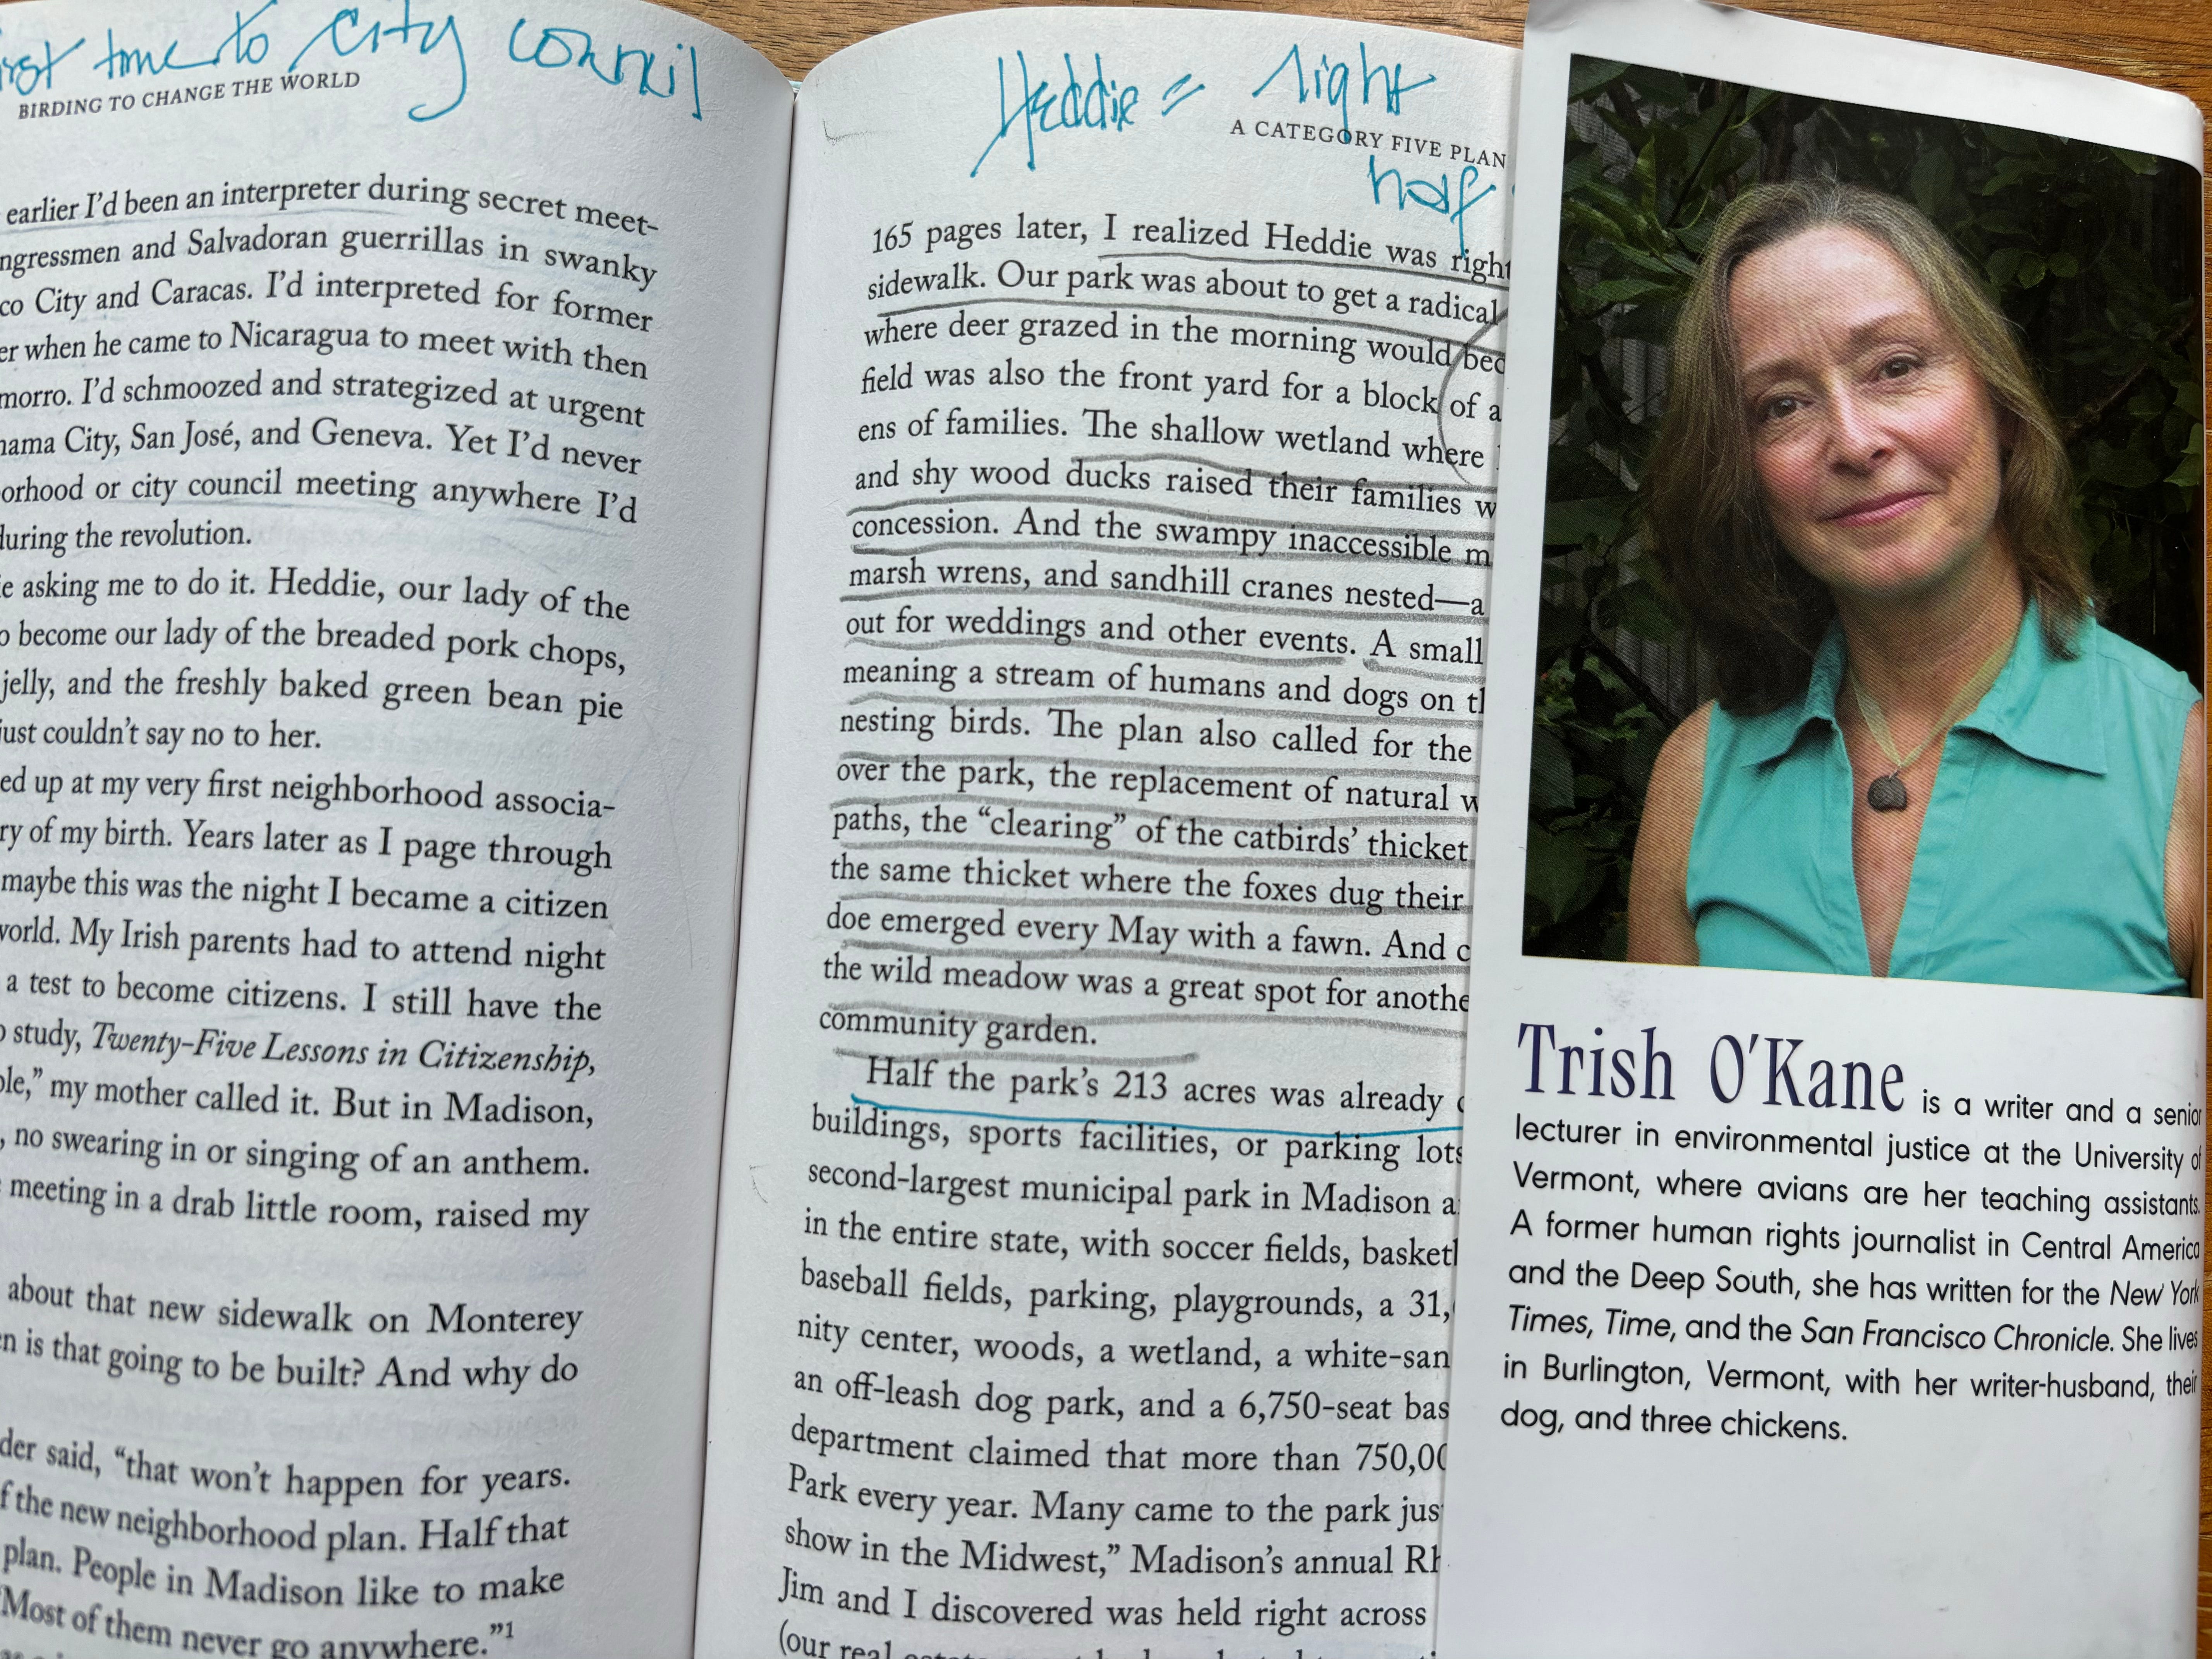 time to City council
BIRDING TO CHANGE THE WORLD
earlier I'd been an interpreter during secret meet-
and Salvadoran guerrillas in swanky
City and Caracas. I'd interpreted for former
when he came to Nicaragua to meet with then
I'd schmoozed and strategized at urgent
City, San José, and Geneva. Yet I'd never
or city council meeting anywhere I'd
during the revolution.
asking me to do it. Heddie, our lady of the
become our lady of the breaded pork chops,
jelly, and the freshly baked green bean pie
just couldn't say no to her.
up at my very first neighborhood associa-
of my birth. Years later as I page through
maybe this was the night I became a citizen
world. My Irish parents had to attend night
a test to become citizens. I still have the
study, Twenty-Five Lessons in Citizenship,
my mother called it. But in Madison,
, no swearing in or singing of an anthem.
meeting in a drab little room, raised my
about that new sidewalk on Monterey
is that going to be built? And why do
said, “that won't happen for years.
the new neighborhood plan. Half that
plan. People in Madison like to make
“Most of them never go anywhere.”1
Heddie = right
A CATEGORY FIVE PLAN
half
165 pages later, I realized Heddie was right
sidewalk. Our park was about to get a radical
where deer grazed in the morning would
field was also the front yard for a block of
ens of families. The shallow wetland where
and shy wood ducks raised their families
concession. And the swampy inaccessible
marsh wrens, and sandhill cranes nested—a
out for weddings and other events. A small
meaning a stream of humans and dogs on
nesting birds. The plan also called for the
over the park, the replacement of natural
paths, the “clearing” of the catbirds' thicket
the same thicket where the foxes dug their
doe emerged every May with a fawn. And
the wild meadow was a great spot for
community garden.
Half the park's 213 acres was already
buildings, sports facilities, or parking lots
second-largest municipal park in Madison
in the entire state, with soccer fields,
baseball fields, parking, playgrounds, a 31,
nity center, woods, a wetland, a
an off-leash dog park, and a 6,750-seat
department claimed that more than
Park every year. Many came to the park
show in the Midwest,” Madison's annual
Jim and I discovered was held right across
(our real
Trish O'Kane is a writer and a senior
lecturer in environmental justice at the University of
Vermont, where avians are her teaching assistants.
A former human rights journalist in Central America
and the Deep South, she has written for the New York
Times, Time, and the San Francisco Chronicle. She lives
in Burlington, Vermont, with her writer-husband, their
dog, and three chickens.